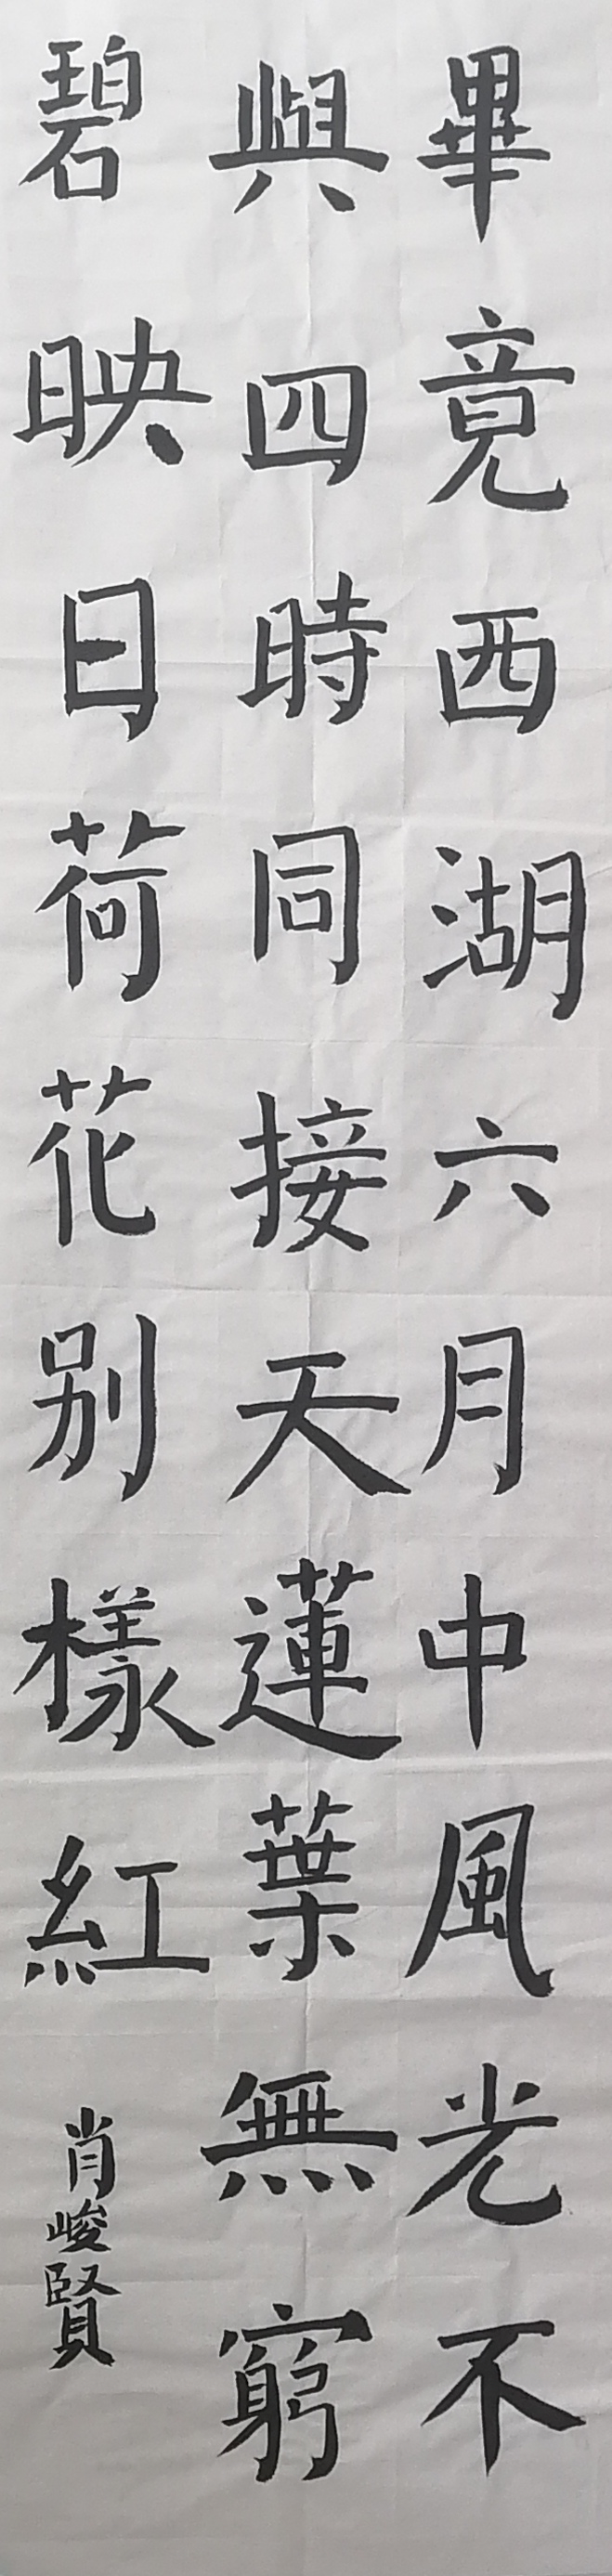 畢竟西湖六月中風光不
與四時同接天蓮葉無窮
碧映日荷花别樣紅
肖峻賢